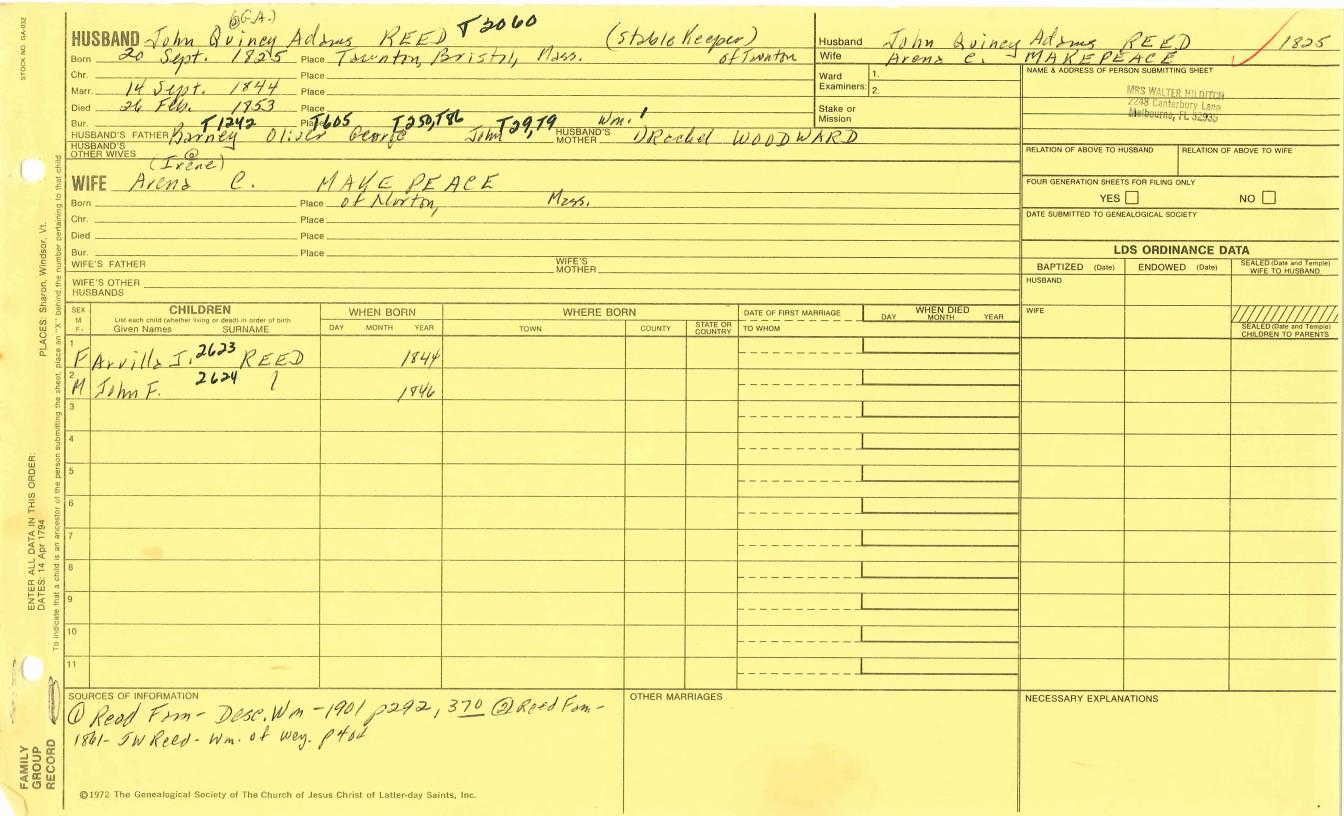 STOCK NO. GA-032
(G.A.)
HUSBAND John Quincy Adams REED T2060 (Stable Keeper)
Born 20 Sept. 1825 Place Taunton, Bristol, Mass. of Taunton
Chr. Place
Marr. 14 Sept. 1844 Place
Died 26 Feb. 1853 Place
Bur. Place
T1242 T605 T250, T86 T29, T9 Wm. 1
HUSBAND'S FATHER Barney Oliver George John HUSBAND'S MOTHER Rachel WOODWARD
HUSBAND'S OTHER WIVES
(Irene)
WIFE Arena C. MAKEPEACE
Born Place of Norton, Mass.
Chr. Place
Died Place
Bur. Place
WIFE'S FATHER WIFE'S MOTHER
WIFE'S OTHER HUSBANDS
Husband John Quincy Adams REED 1825
Wife Arena C. MAKEPEACE
Ward Examiners: 1.
2.
Stake or Mission
NAME & ADDRESS OF PERSON SUBMITTING SHEET
MRS WALTER HILDITCH
2248 Canterbury Lane
Melbourne, FL 32935
RELATION OF ABOVE TO HUSBAND RELATION OF ABOVE TO WIFE
FOUR GENERATION SHEETS FOR FILING ONLY
YES NO
DATE SUBMITTED TO GENEALOGICAL SOCIETY
LDS ORDINANCE DATA
BAPTIZED (Date) ENDOWED (Date) SEALED (Date and Temple) WIFE TO HUSBAND
HUSBAND
WIFE
SEALED (Date and Temple) CHILDREN TO PARENTS
SEX M F CHILDREN WHEN BORN WHERE BORN DATE OF FIRST MARRIAGE WHEN DIED
List each child (whether living or dead) in order of birth
Given Names SURNAME DAY MONTH YEAR TOWN COUNTY STATE OR COUNTRY TO WHOM DAY MONTH YEAR
1 F Arvilla J. 2623 REED 1844
2 M John F. 2624 1846
3
4
5
6
7
8
9
10
11
SOURCES OF INFORMATION
① Reed Fam- Desc. Wm -1901 p292, 370 ② Reed Fam-
1861- JW Reed- Wm. of Wey.
OTHER MARRIAGES
NECESSARY EXPLANATIONS
©1972 The Genealogical Society of The Church of Jesus Christ of Latter-day Saints, Inc.
FAMILY GROUP RECORD
ENTER ALL DATA IN THIS ORDER:
DATES: 14 Apr 1794
PLACES: Sharon, Windsor, Vt.
To indicate that a child is an ancestor of the person submitting the sheet, place an "X" behind the number pertaining to that child